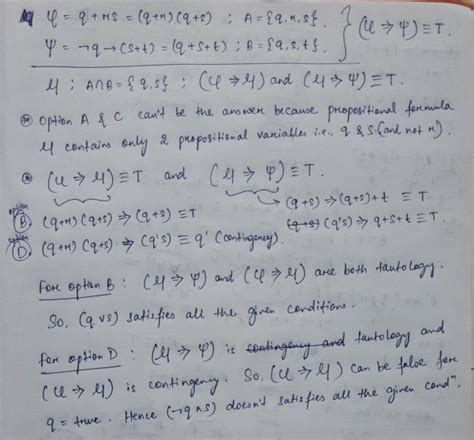 φ = q + rs = (q+r)(q+s) ; A = {q,r,s}.
ψ = ¬q → (s+t) = (q+s+t) ; B = {q,s,t}.
(φ ⇒ ψ) ≡ T.
μ ; A∩B = {q,s} ; (φ ⇒ μ) and (μ ⇒ ψ) ≡ T.
⊛ Option A & C can't be the answer because propositional formula
μ contains only 2 propositional variables i.e., q & s (and not r).
⊛ (φ ⇒ μ) ≡ T and (μ ⇒ ψ) ≡ T.
(q+s) ⇒ (q+s)+t ≡ T
option B. (q+r)(q+s) ⇒ (q+s) ≡ T
(q+s) (q's) ⇒ q+s+t ≡ T.
option D. (q+r)(q+s) ⇒ (q's) ≡ q' (contingency).
For option B : (μ ⇒ ψ) and (φ ⇒ μ) are both tautology.
So, (q ∨ s) satisfies all the given conditions.
For option D : (μ ⇒ ψ) is contingency and tautology and
(φ ⇒ μ) is contingency. So, (φ ⇒ μ) can be false for
q = true. Hence (¬q ∧ s) doesn't satisfies all the given condⁿ.